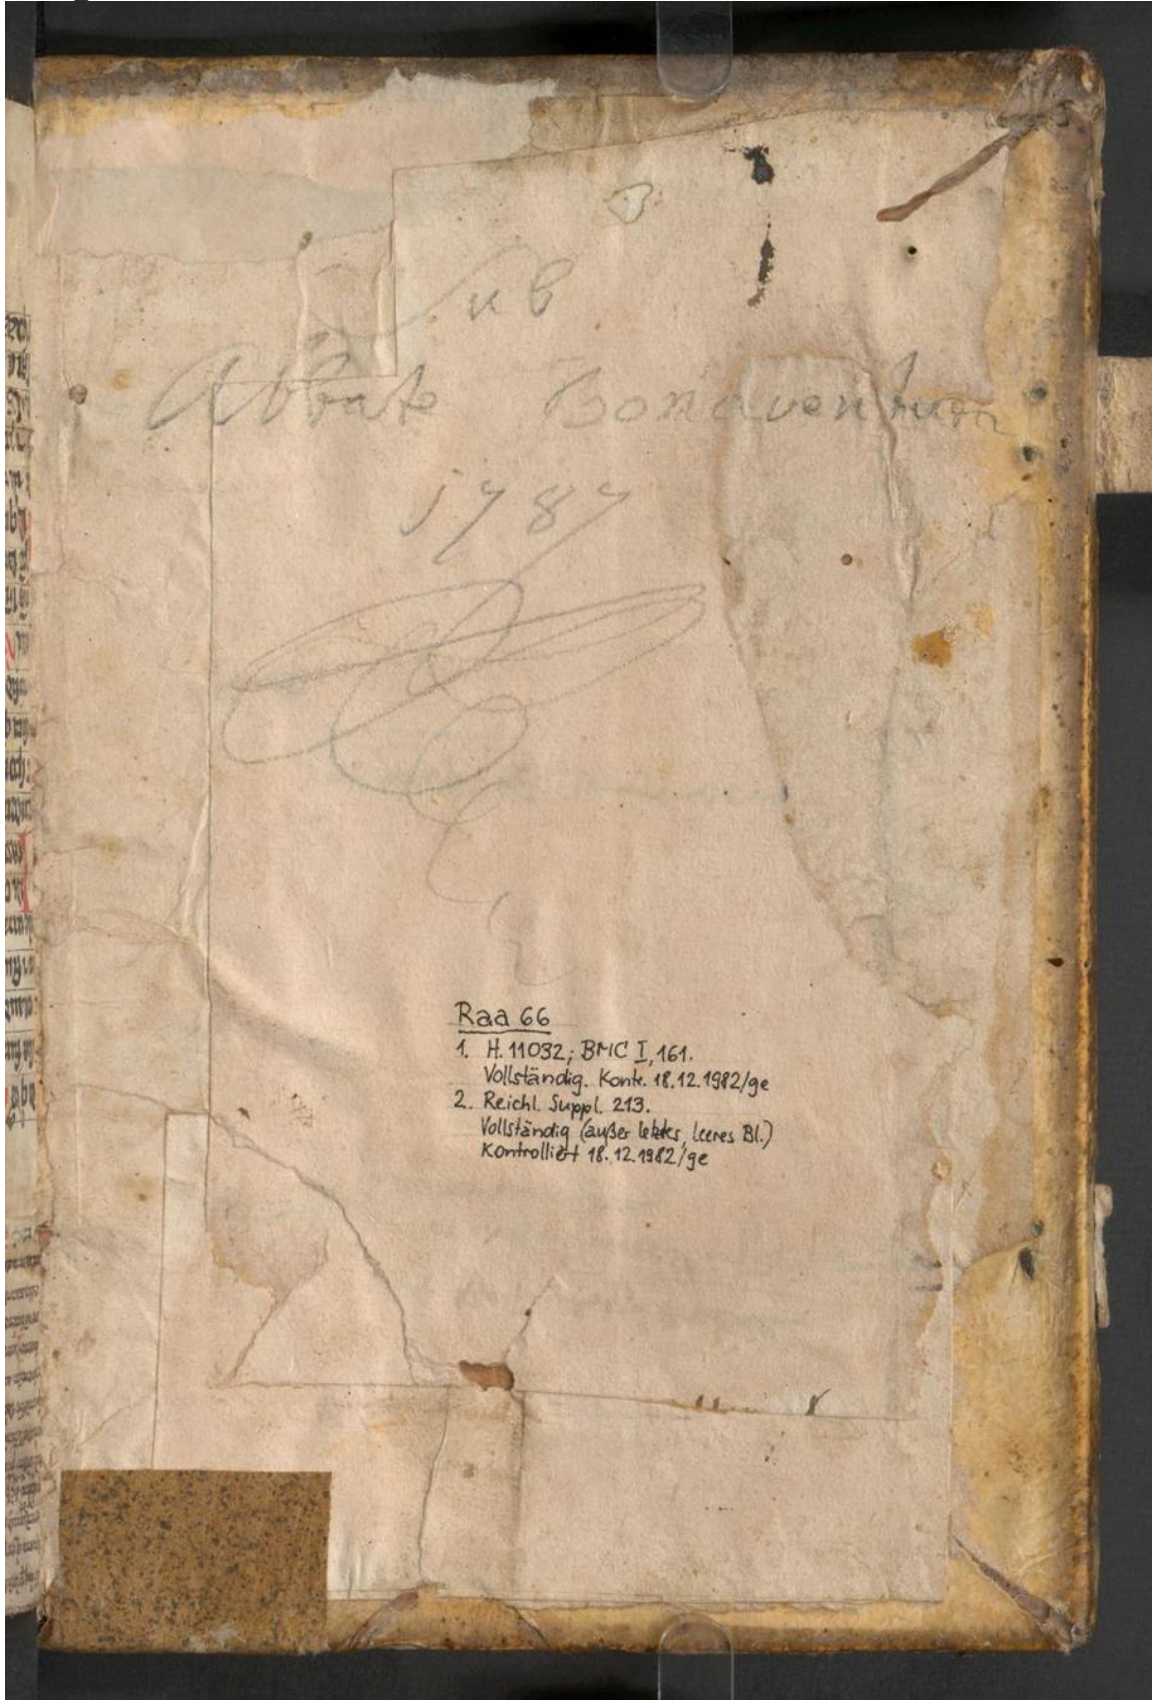 Sub
Abbate Bonaventura
1787
Raa 66
1. H. 11032; BMC I, 161.
Vollständig. Kontr. 18.12.1982/ge
2. Reichl. Suppl. 213.
Vollständig (außer letztes, leeres Bl.)
Kontrolliert 18.12.1982/ge